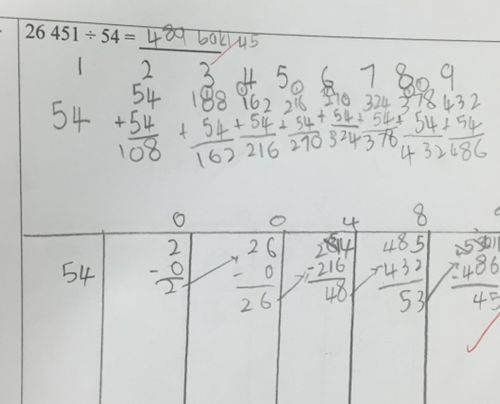 26 451 ÷ 54 = 489 baki 45
1 2 3 4 5 6 7 8 9
54 54 108 162 216 270 324 378 432
+54 +54 +54 +54 +54 +54 +54 +54
108 162 216 270 324 378 432 486
0 0 4 8
54 2 26 264 485 531
-0 -0 -216 -432 -486
2 26 48 53 45